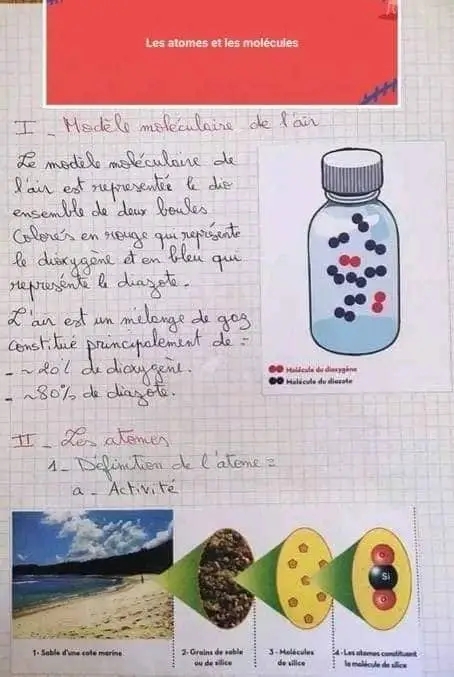 Les atomes et les molécules
I _ Modèle moléculaire de l'air
Le modèle moléculaire de
l'air est representée le dio
ensemble de deux boules.
Colorés en rouge qui représente
le dioxygène et en bleu qui
représente le diazote.
L'air est un mélange de gaz
constitué principalement de :
- ~20% de dioxygène.
- ~80% de diazote.
Molécule du dioxygène
Molécule du diazote
II _ Les atomes
1 - Définition de l'atome :
a - Activité
Si
1- Sable d'une cote marine
2- Grains de sable
ou de silice
3- Molécules
de silice
4- Les atomes constituant
la molécule de silice